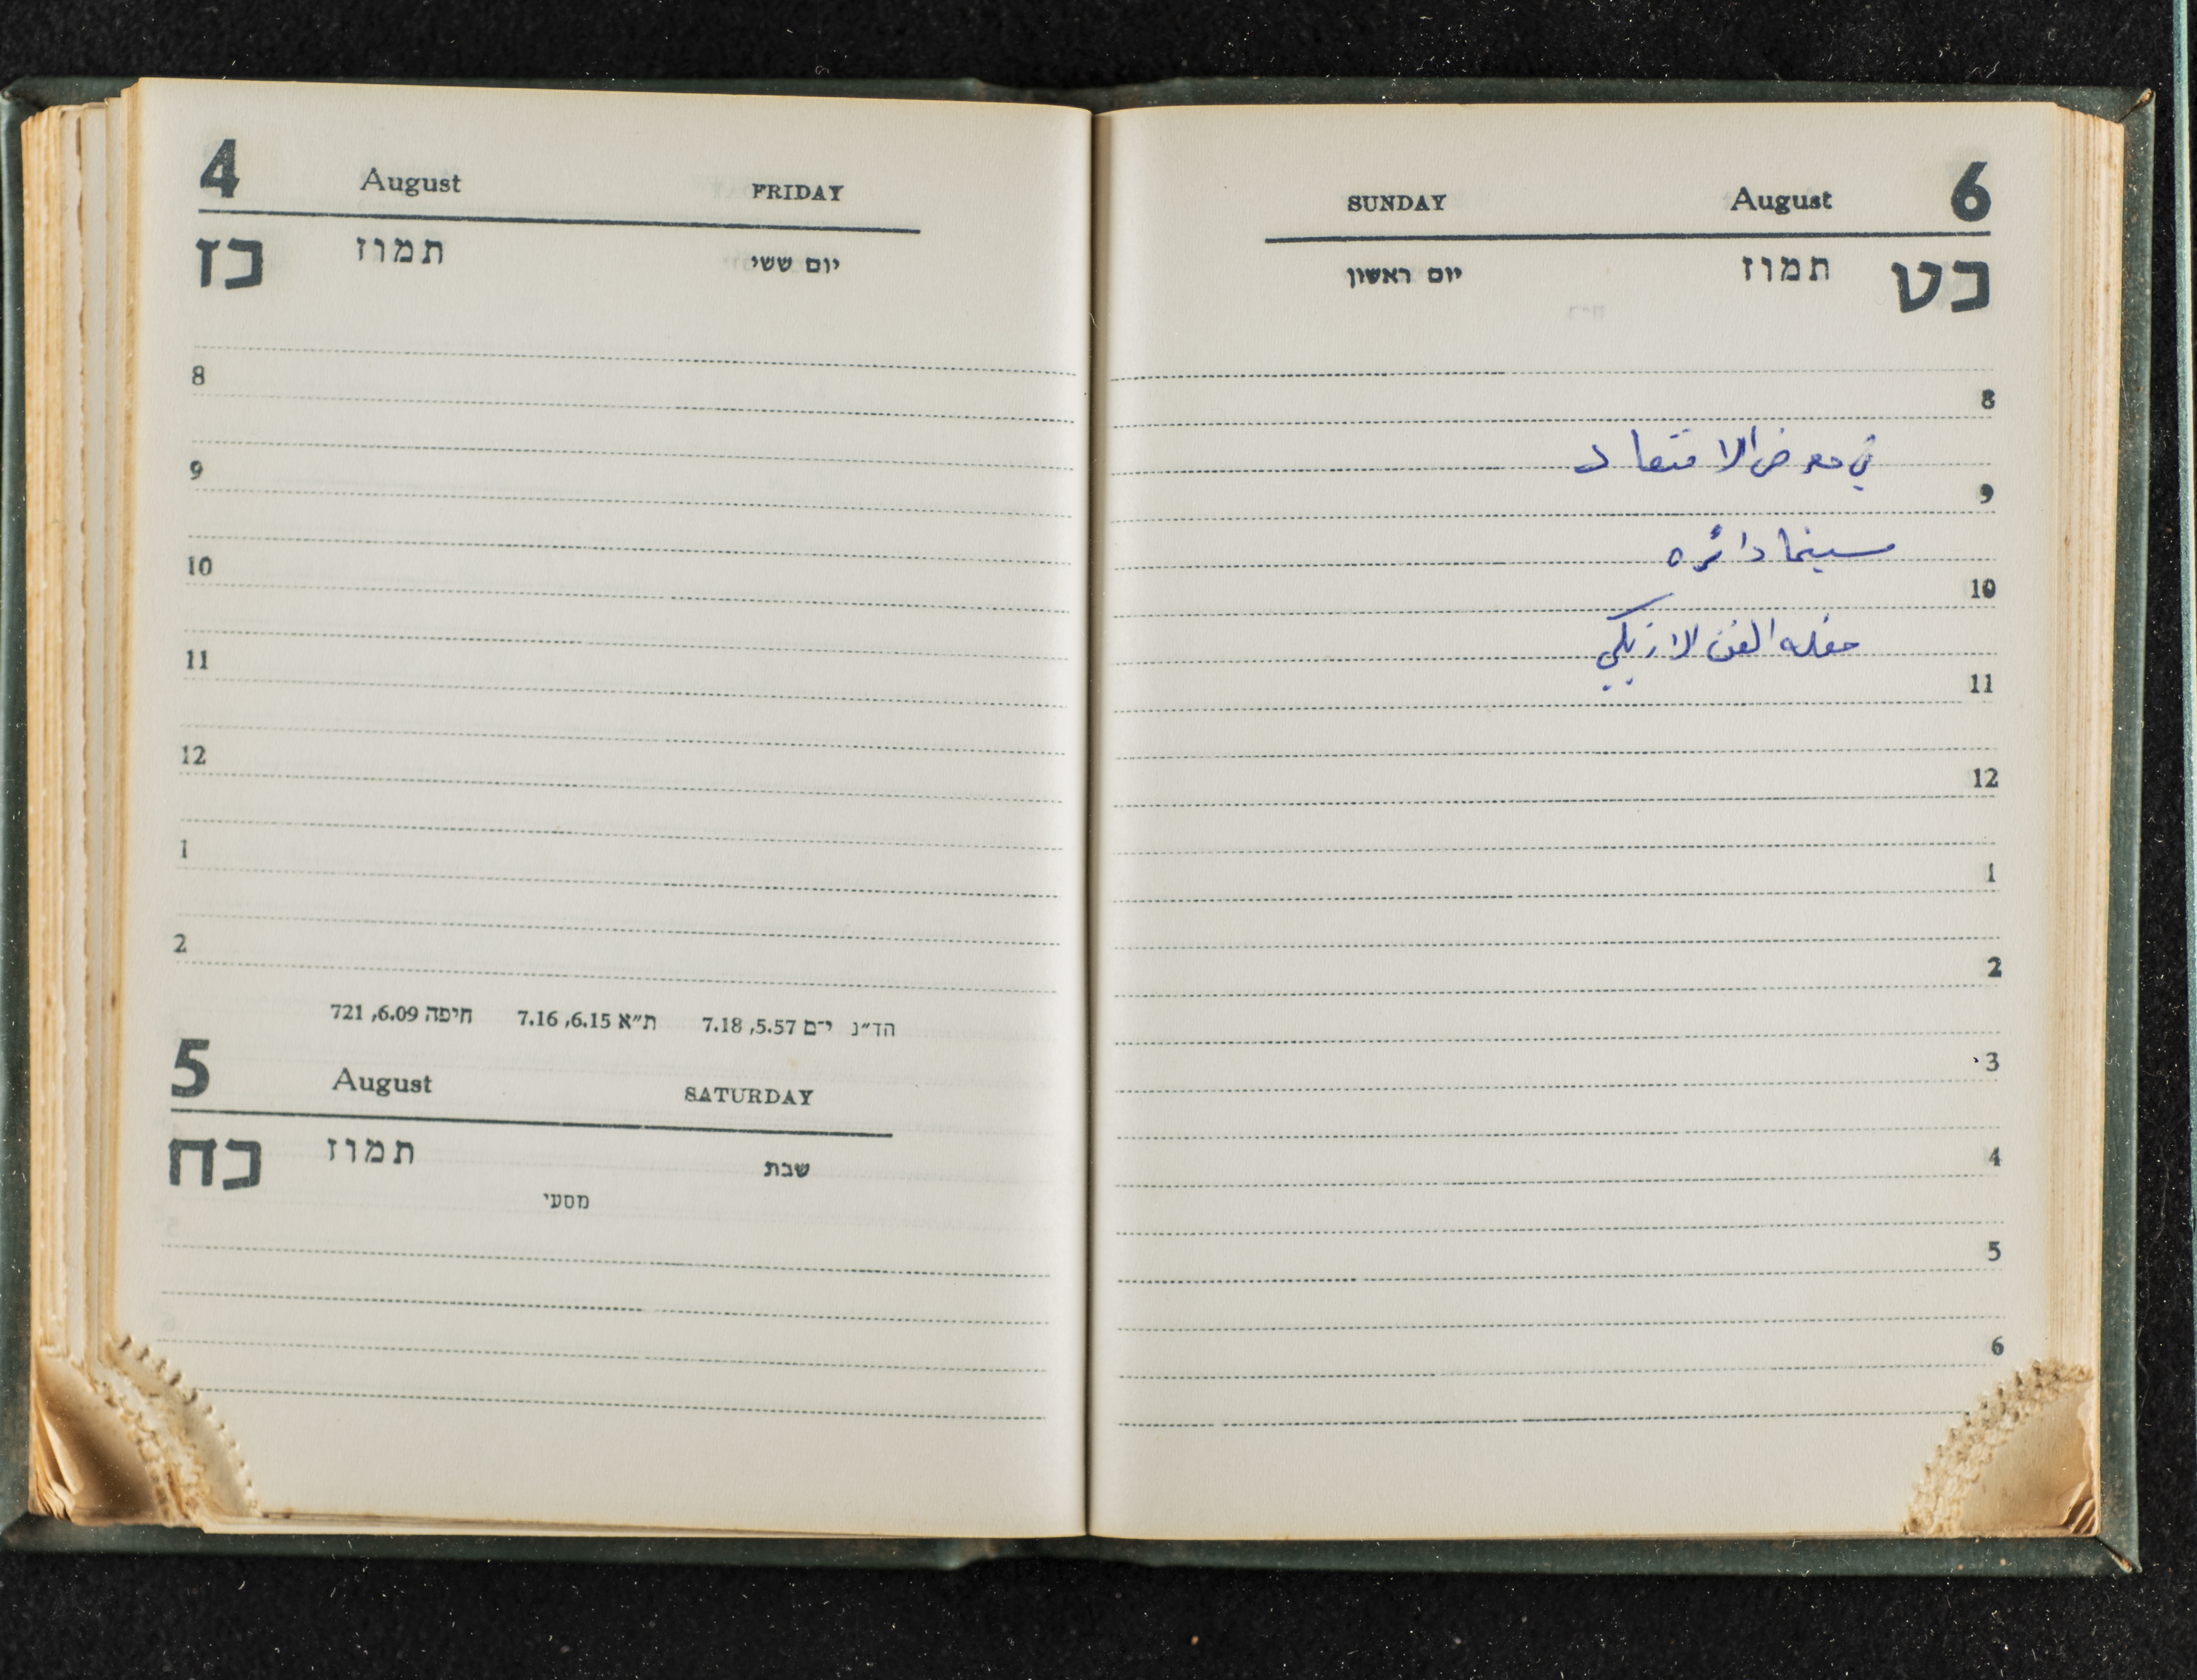 4 August FRIDAY
כז תמוז יום ששי
8
9
10
11
12
1
2
הד״נ י־ם 5.57, 7.18 ת״א 6.15, 7.16 חיפה 6.09, 721
5 August SATURDAY
כח תמוז שבת
מסעי
SUNDAY August 6
כט תמוז יום ראשון
8
في معرض الاقتصاد
9
سينما دائره
10
حفله الفن الازبكي
11
12
1
2
3
4
5
6